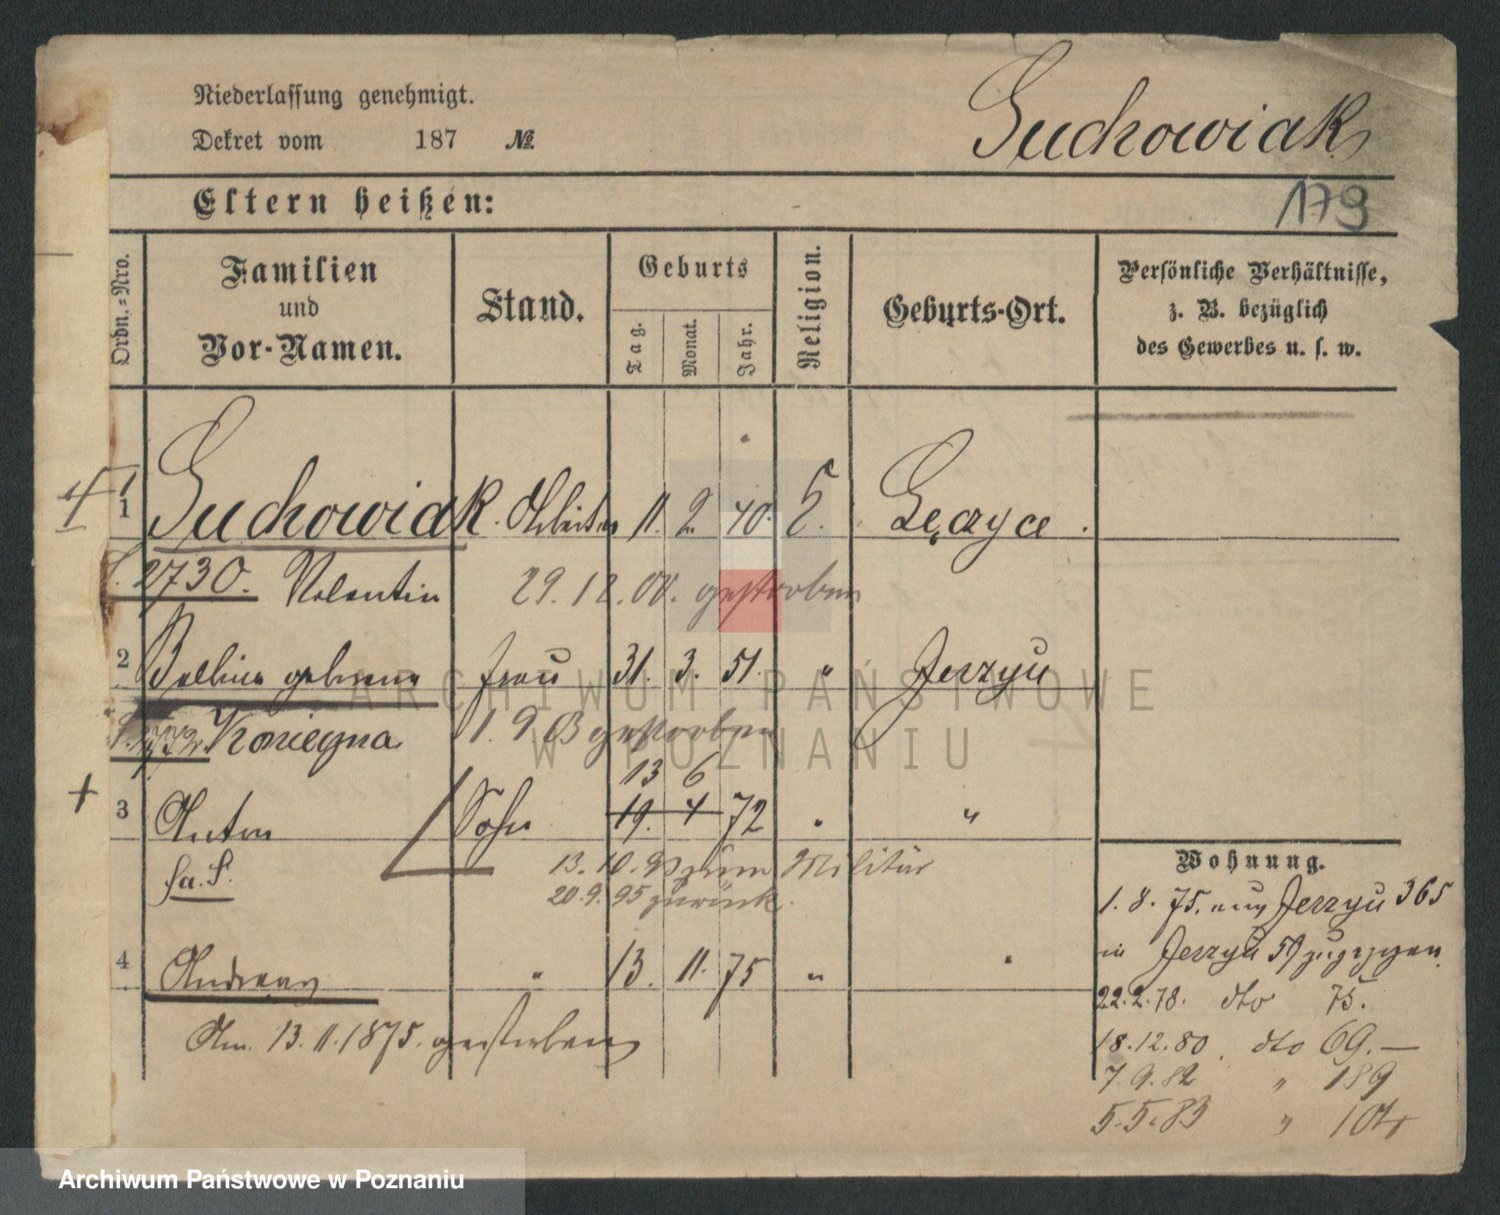 Niederlassung genehmigt.
Dekret vom 187 №
Suchowiak
Eltern heißen:
179
Ordn.-Nro.
Familien
und
Vor-Namen.
Stand.
Geburts
Tag.
Monat.
Jahr.
Religion.
Geburts-Ort.
Persönliche Verhältnisse,
z. B. bezüglich
des Gewerbes u. s. w.
1 Suchowiak. Arbeiter 11. 2. 40. Łęczyce.
2730. Valentin 29.12.00. gestorben
2 Balbina geborene Frau 31. 3. 51. " Jerzyce
Koziegna 1. 9. 03 gestorben
13 6
+ 3 Anton Sohn 19. 4 72 " "
13.10.93 zum Militär
20.9.95 zurück.
4 Andreas " 13. 11. 75 " "
Am 13.11.1875. gestorben
Wohnung.
1. 8. 75. aus Jerzyce 365
in Jerzyce 59 zugezogen
22.2.78. dto 75.
18.12.80. dto 69.—
7.9.82 " 189
5.5.83 "
ARCHIWUM PAŃSTWOWE
W POZNANIU
Archiwum Państwowe w Poznaniu